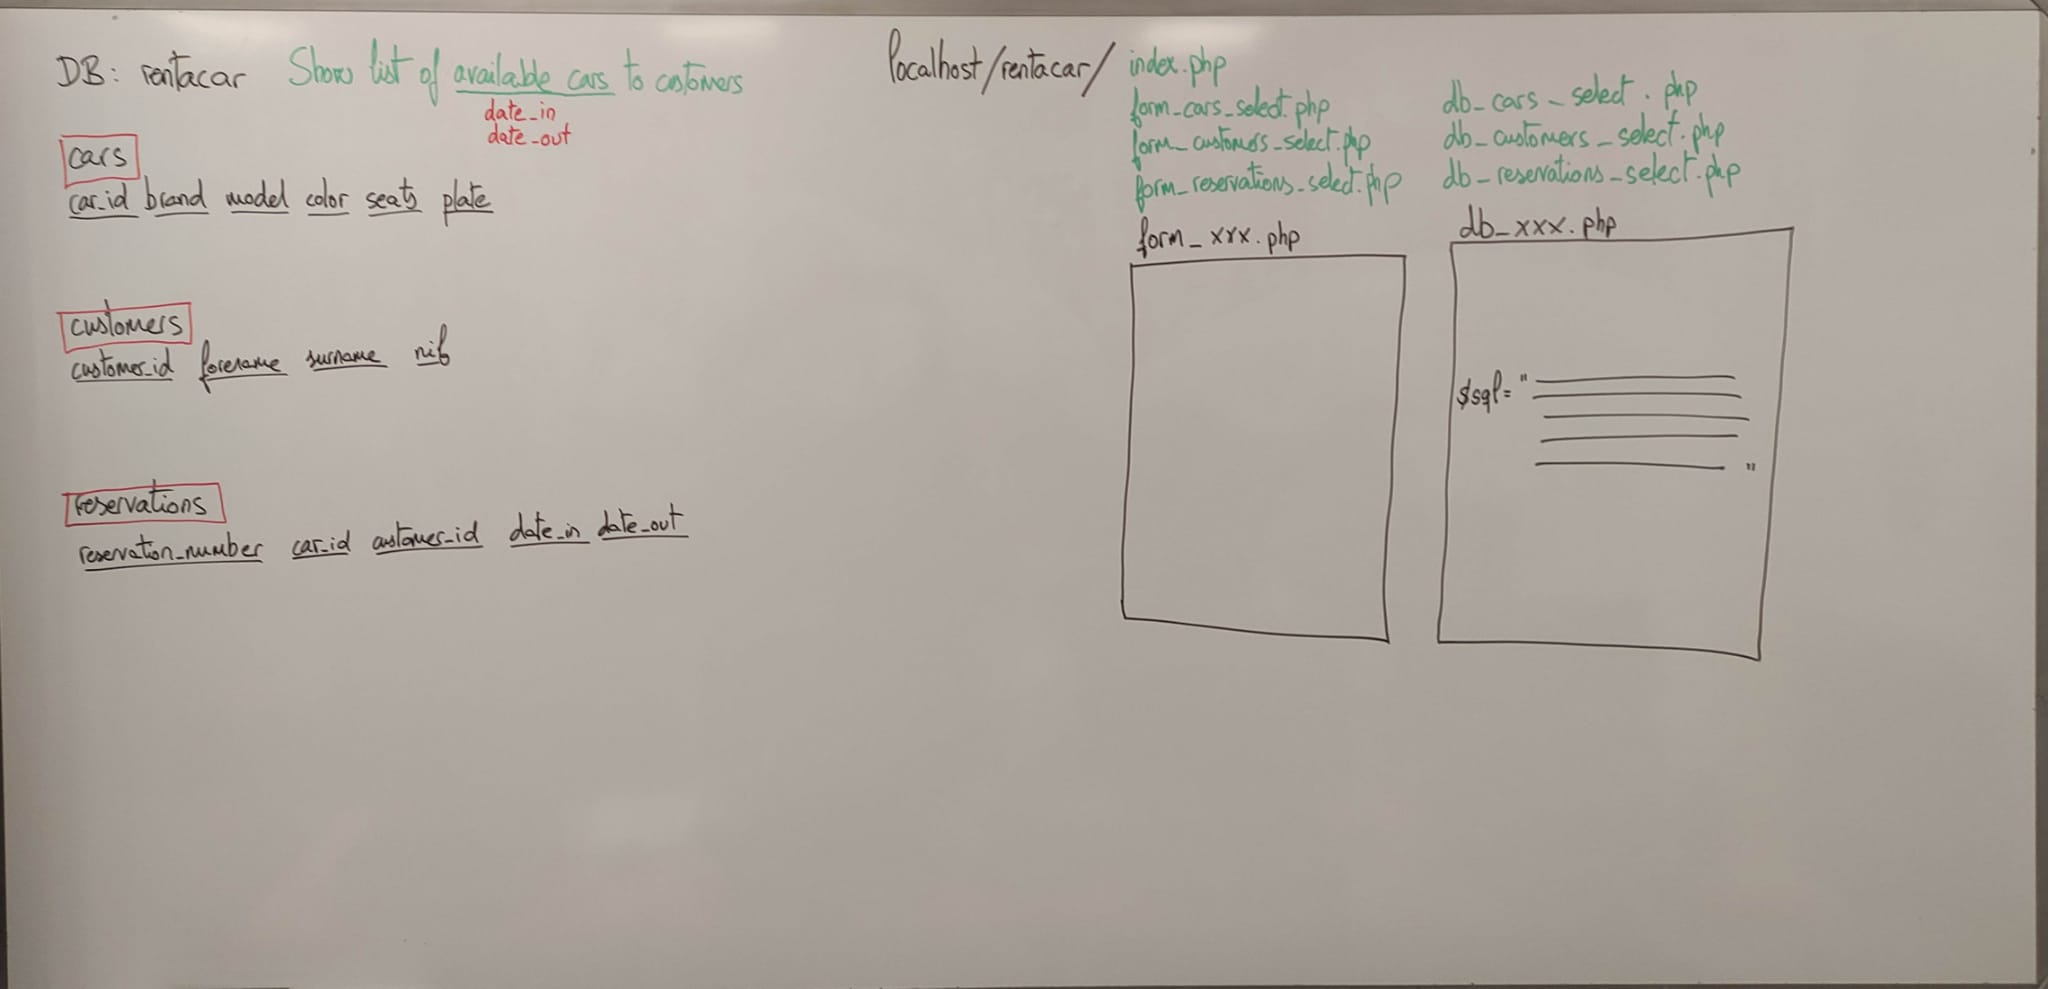 DB: rentacar Show list of available cars to customers
date_in
date_out
cars
car_id brand model color seats plate
customers
customer_id forename surname nif
reservations
reservation_number car_id customer_id date_in date_out
localhost/rentacar/ index.php
form_cars_select.php
form_customers_select.php
form_reservations_select.php
db_cars_select.php
db_customers_select.php
db_reservations_select.php
form_xxx.php
db_xxx.php
$sql= " "